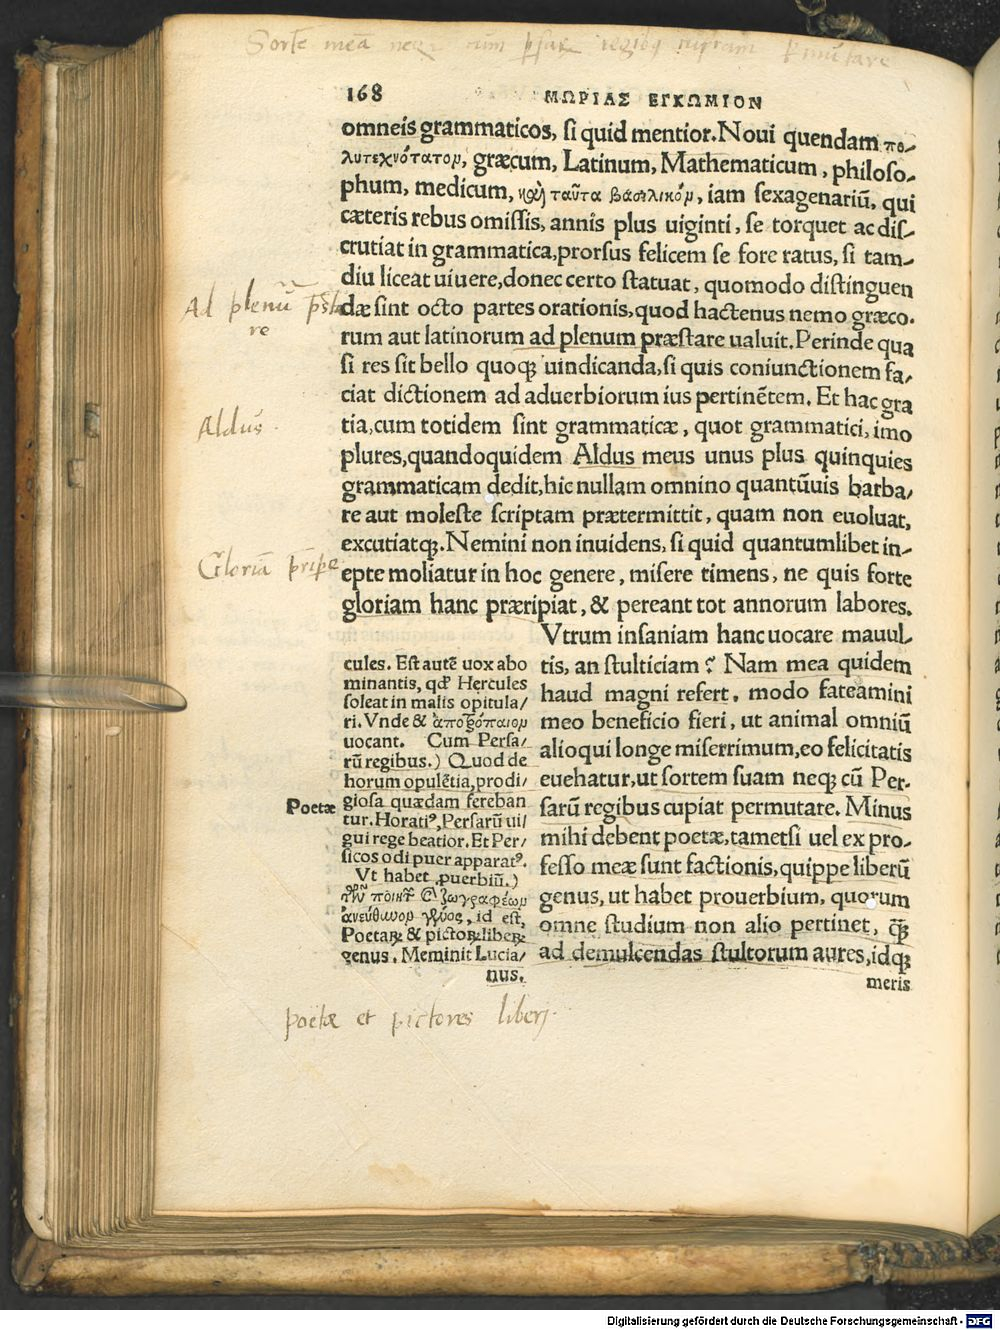 Sorte meā neqꝫ cum psar regibꝫ cupiam permutare
168 ΜΩΡΙΑΣ ΕΓΚΩΜΙΟΝ
omneis grammaticos, si quid mentior. Noui quendam πο-
λυτεχνότατον, græcum, Latinum, Mathematicum, philoso-
phum, medicum, καὶ ταῦτα βασιλικόν, iam sexagenariū, qui
cæteris rebus omissis, annis plus uiginti, se torquet ac dis-
crutiat in grammatica, prorsus felicem se fore ratus, si tam-
diu liceat uiuere, donec certo statuat, quomodo distinguen
Ad plenū præsta
re
dæ sint octo partes orationis, quod hactenus nemo græco.
rum aut latinorum ad plenum præstare ualuit. Perinde qua
si res sit bello quoqꝫ uindicanda, si quis coniunctionem fa-
ciat dictionem ad aduerbiorum ius pertinētem. Et hac gra
Aldus.
tia, cum totidem sint grammaticæ, quot grammatici, imo
plures, quandoquidem Aldus meus unus plus quinquies
grammaticam dedit, hic nullam omnino quantūuis barba-
re aut moleste scriptam prætermittit, quam non euoluat,
excutiatqꝫ. Nemini non inuidens, si quid quantumlibet in-
Gloriā præripe
epte moliatur in hoc genere, misere timens, ne quis forte
gloriam hanc præripiat, & pereant tot annorum labores.
Vtrum insaniam hanc uocare mauul-
tis, an stulticiam? Nam mea quidem
haud magni refert, modo fateamini
meo beneficio fieri, ut animal omniū
alioqui longe miserrimum, eo felicitatis
euehatur, ut sortem suam neqꝫ cū Per-
sarū regibus cupiat permutare. Minus
mihi debent poetæ, tametsi uel ex pro-
fesso meæ sunt factionis, quippe liberū
genus, ut habet prouerbium, quorum
omne studium non alio pertinet, ꝗ̄
ad demulcendas stultorum aures, idqꝫ
meris
cules. Est autē uox abo
minantis, qd̓ Hercules
soleat in malis opitula-
ri. Vnde & ἀποτρόπαιον
uocant. Cum Persa-
rū regibus.) Quod de
horum opulētia, prodi-
Poetæ
giosa quædam fereban
tur. Horatiꝰ, Persarū ui-
gui rege beatior. Et Per-
sicos odi puer apparatꝰ.
Vt habet ꝓuerbiū.)
τῶν ποιητῶν καὶ ζωγραφέων
ἀνεύθυνον γένος, id est,
Poetaꝝ & pictoꝝ libeꝝ
genus. Meminit Lucia-
nus.
poetæ et pictores liberj.
Digitalisierung gefördert durch die Deutsche Forschungsgemeinschaft - DFG